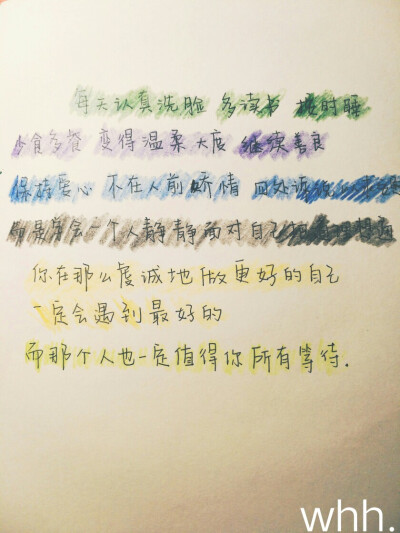 每天认真洗脸 多读书 按时睡
少食多餐 变得温柔 大度 继续善良
保持爱心 不在人前矫情 四处诉说
学会一个人静静面对自己
你在那么虔诚地做更好的自己
一定会遇到最好的
而那个人也一定值得你所有等待.
whh.